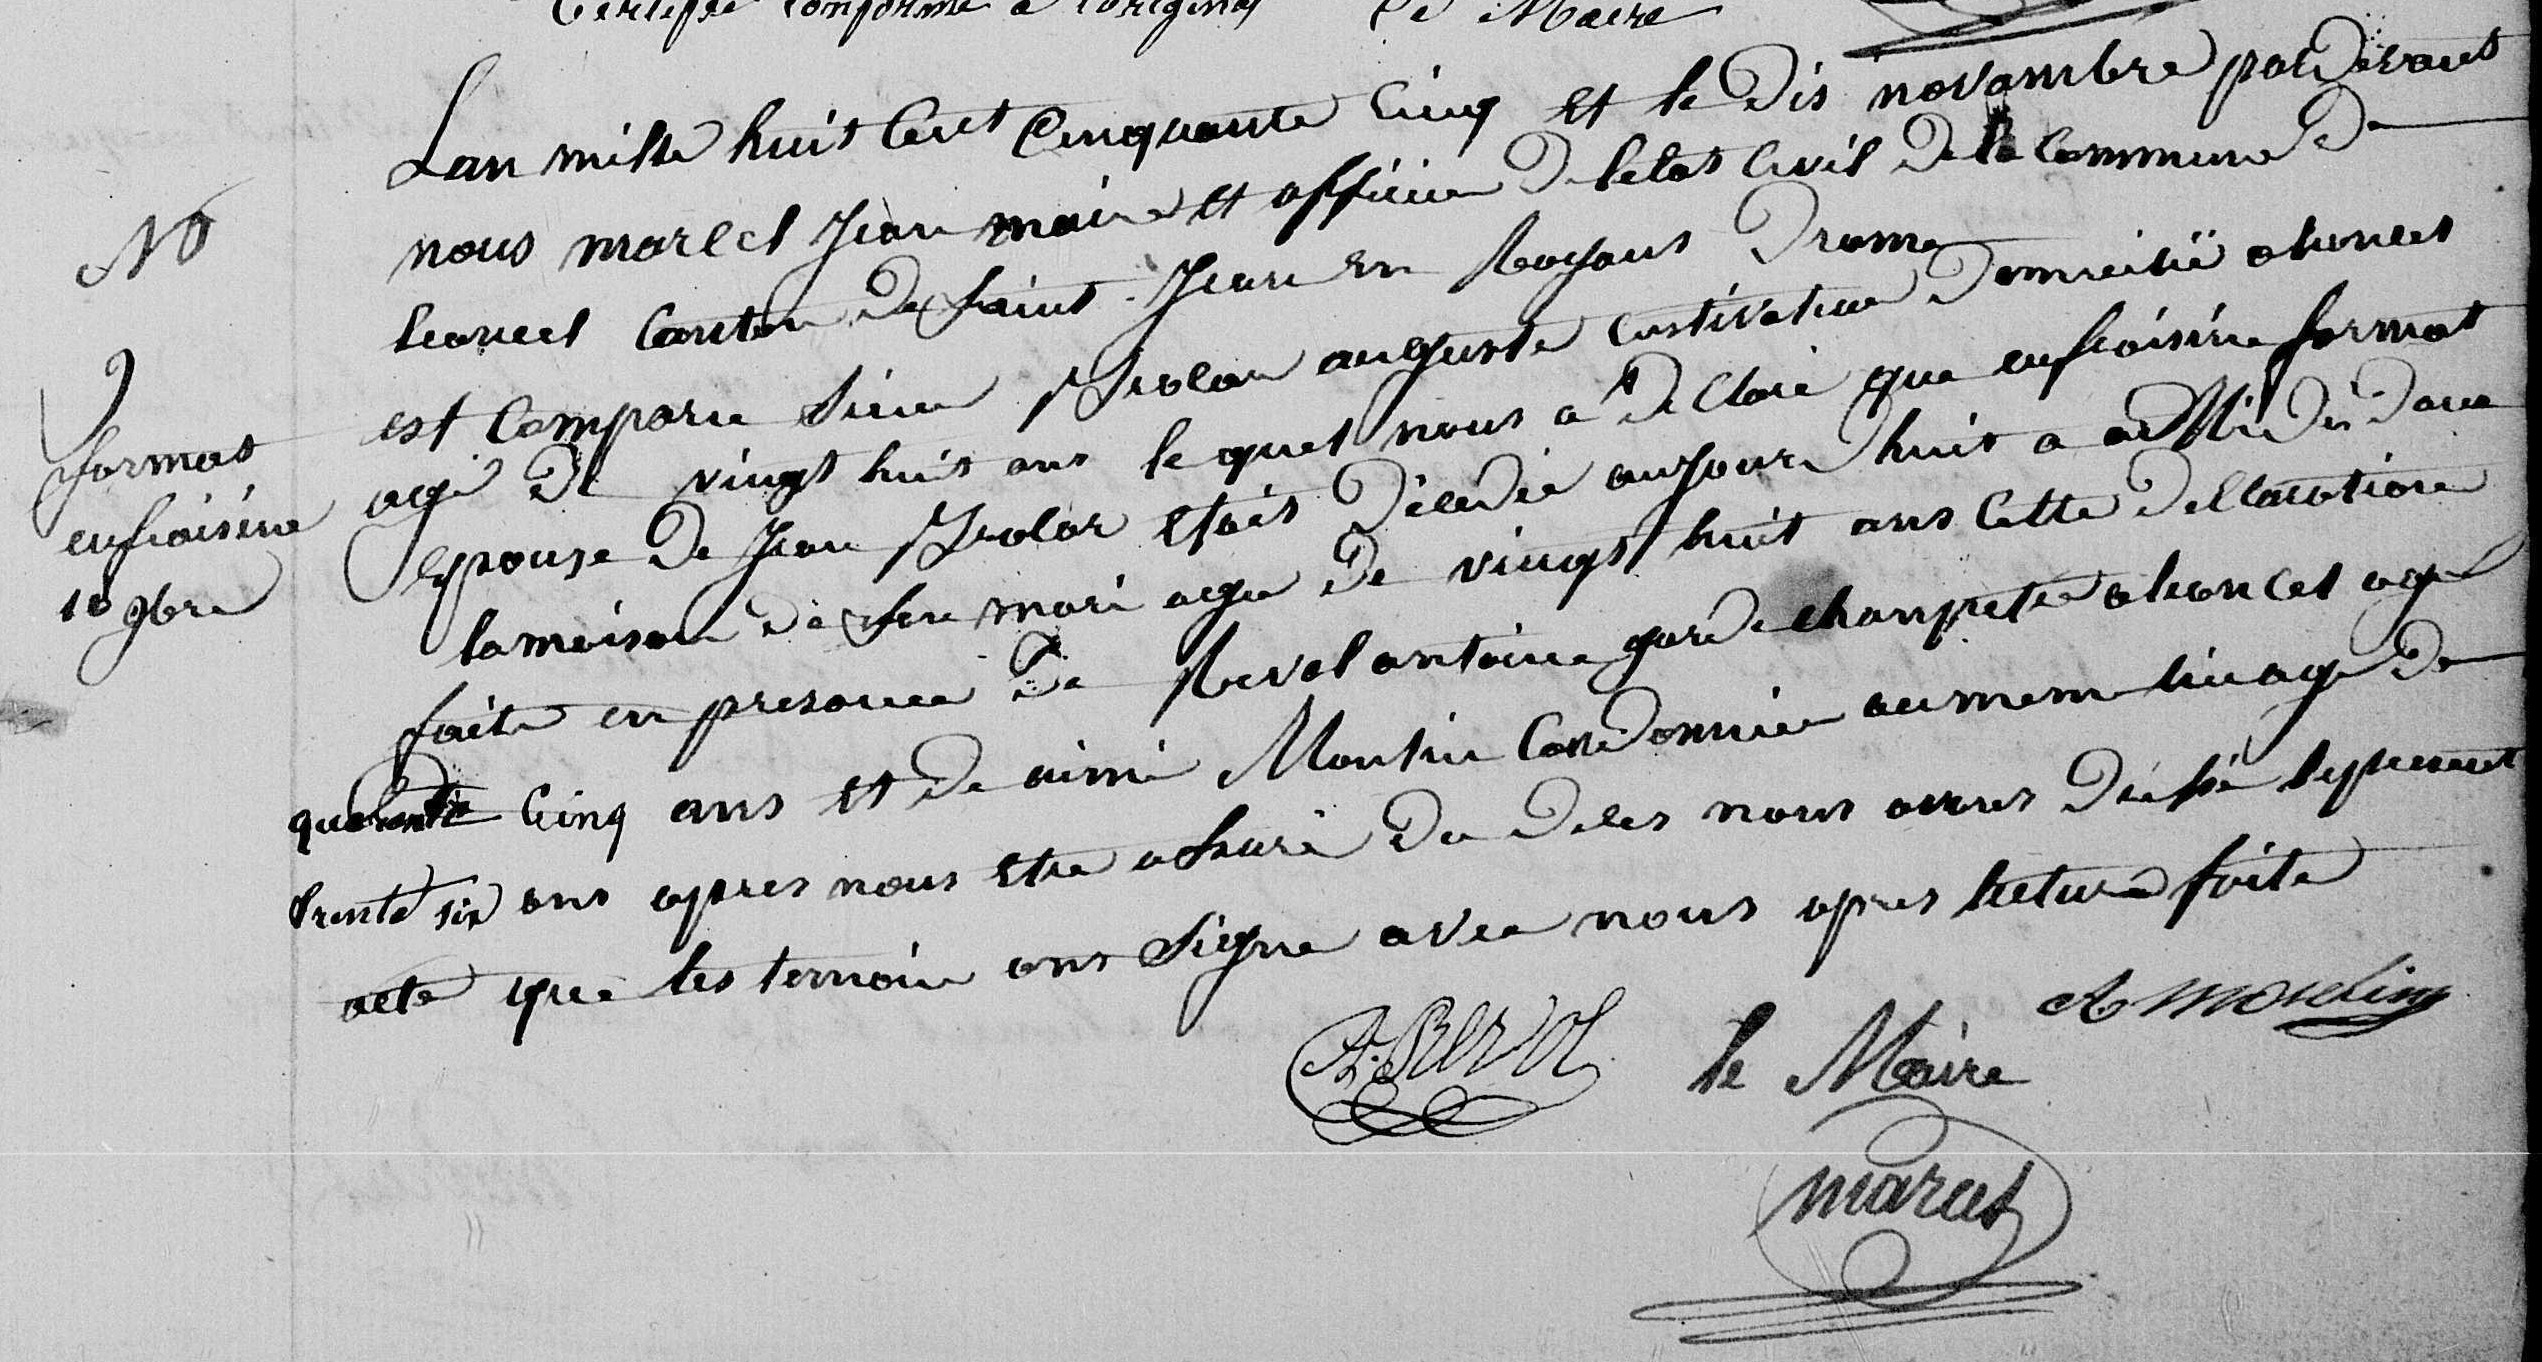 Certifié conforme a l'original Le Maire
Lan mille huit Cent Cinquante Cinq et le dis novambre pardevant
nous marcel Jean maire et officier de letat Civil de la Commune de
leoncel Canton de saint Jean en Royans Drome
est Comparu sieur auguste Cultivateur domicilié a leoncel
agé de vingt huit ans le quel nous a declaré que eufroisine format
Epouse de Jean etait décédée aujourdhuit a midi dans
la maison de son mari agee de vingt huit ans Cette declaration
faite en presance de Revol antoine garde champetre a leoncel agé
N°
format
eufroisine
10 9bre
quarante Cinq ans et de aimé Cordonnier au meme lieu agé de
trente six ans apres nous etre assuré du deces nous avons dressé le present
acte que les temoin ons signe avec nous apres lecture faite
A. Revol
le Maire
marcel